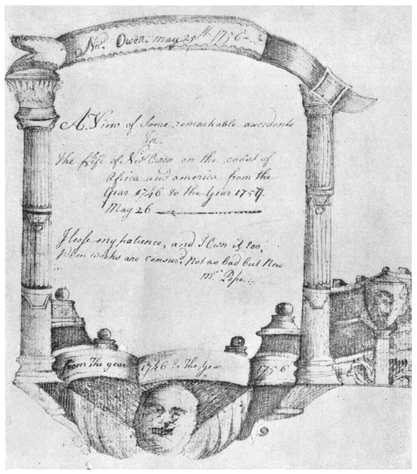 Nics. Owen. May 25th 1756
A View of Some remarkable axcedents
In
The Life of Nics. Owen on the coast of
Africa and america from the
Year 1746 to the Year 1757
May 26
I loose my patience, and I Own it too,
When works are censur'd, Not as bad but New
Mr. Pope.
from the year 1746 to the year 1756